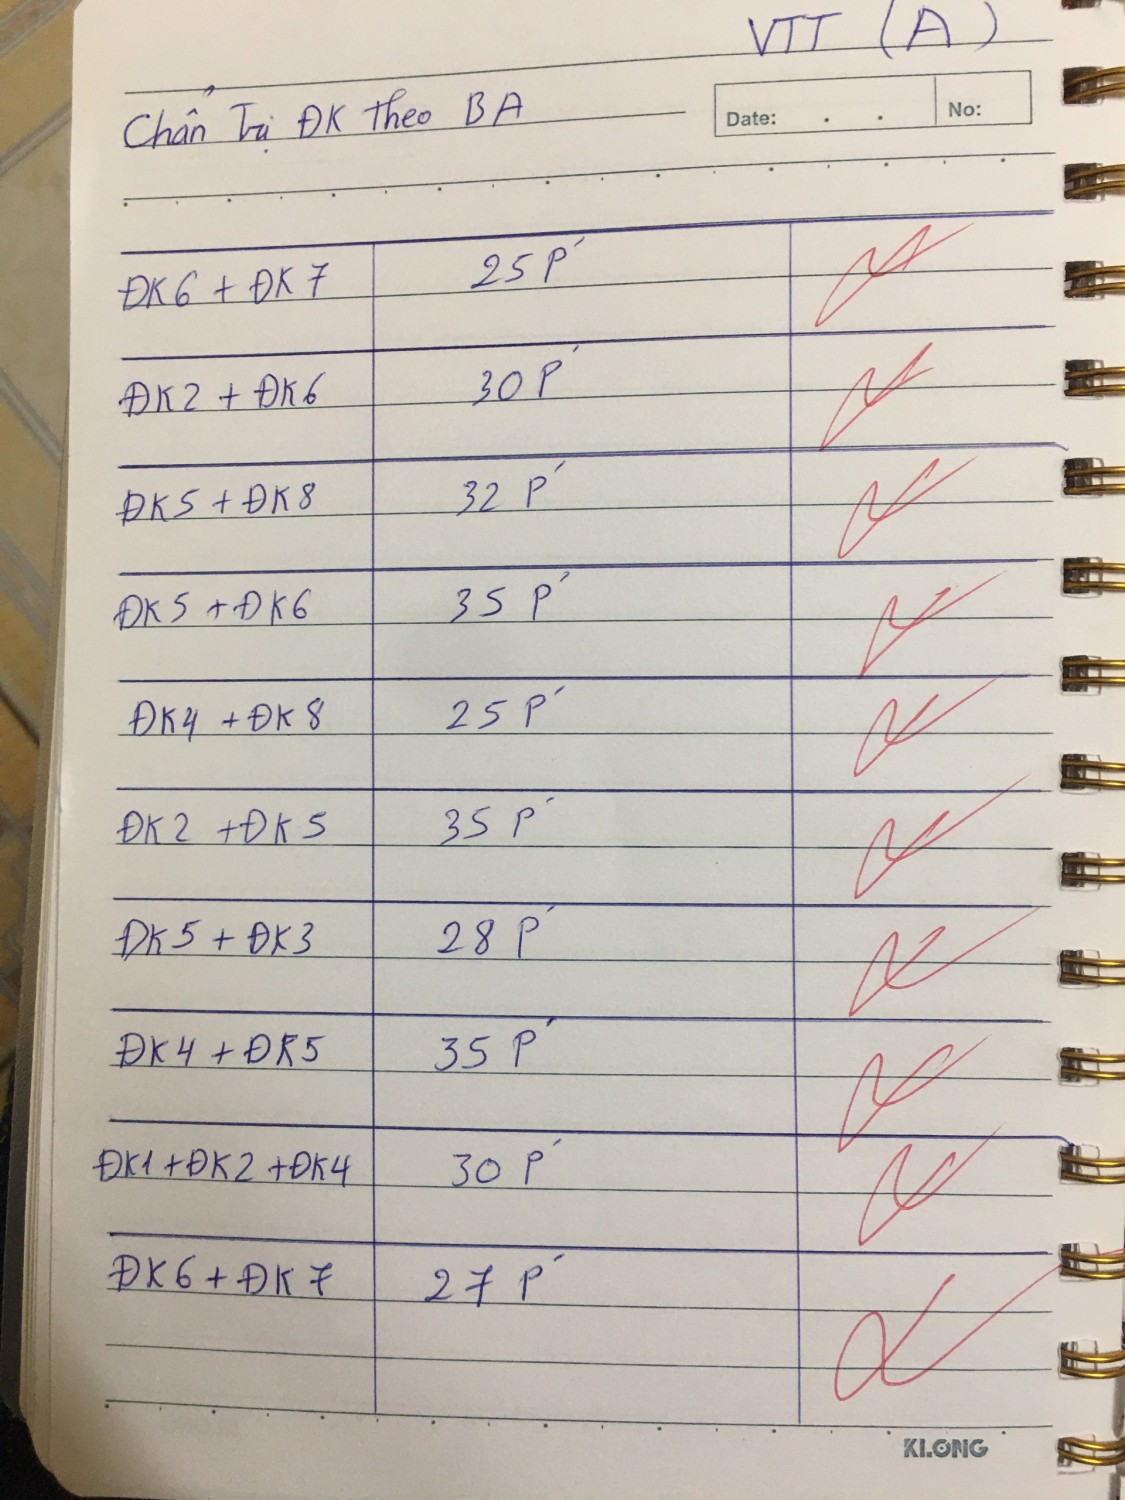 VTT (A)
Chẩn Trị ĐK Theo BA
Date: . . No:
ĐK6 + ĐK7 25 P'
ĐK2 + ĐK6 30 P'
ĐK5 + ĐK8 32 P'
ĐK5 + ĐK6 35 P'
ĐK4 + ĐK8 25 P'
ĐK2 + ĐK5 35 P'
ĐK5 + ĐK3 28 P'
ĐK4 + ĐK5 35 P'
ĐK1 + ĐK2 + ĐK4 30 P'
ĐK6 + ĐK7 27 P'
KLONG